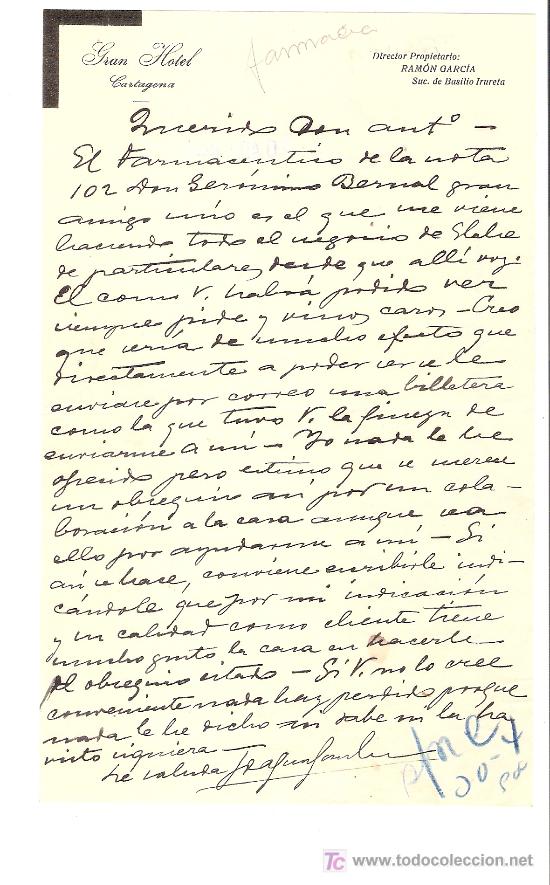 farmacia
Gran Hotel
Cartagena
Director Propietario:
RAMÓN GARCÍA
Suc. de Basilio Irureta
Querido Don Antº —
El Farmaceutico de la nota
102 Don Gerónimo Bernal gran
amigo mio es el que me viene
haciendo todo el negocio de Elche
de particulares desde que allí voy.
El como V. habrá podido ver
siempre pide y vinos caros — Creo
que seria de mucho efecto que
directamente a poder ser se le
enviase por correo una billetera
como la que tuvo V. la fineza de
enviarme a mi — Yo nada le he
ofrecido pero estimo que se merece
un obsequio asi por su cola-
boración a la casa aunque sea
ello por ayudarme a mí — Si
asi se hace, conviene escribirle indi-
cándole que por mi indicación
y su calidad como cliente tiene
mucho gusto la casa en hacerle
el obsequio citado — Si V. no lo cree
conveniente nada hay perdido porque
nada le he dicho ni sabe ni la ha
visto siquiera —
Le saluda
TC www.todocoleccion.net